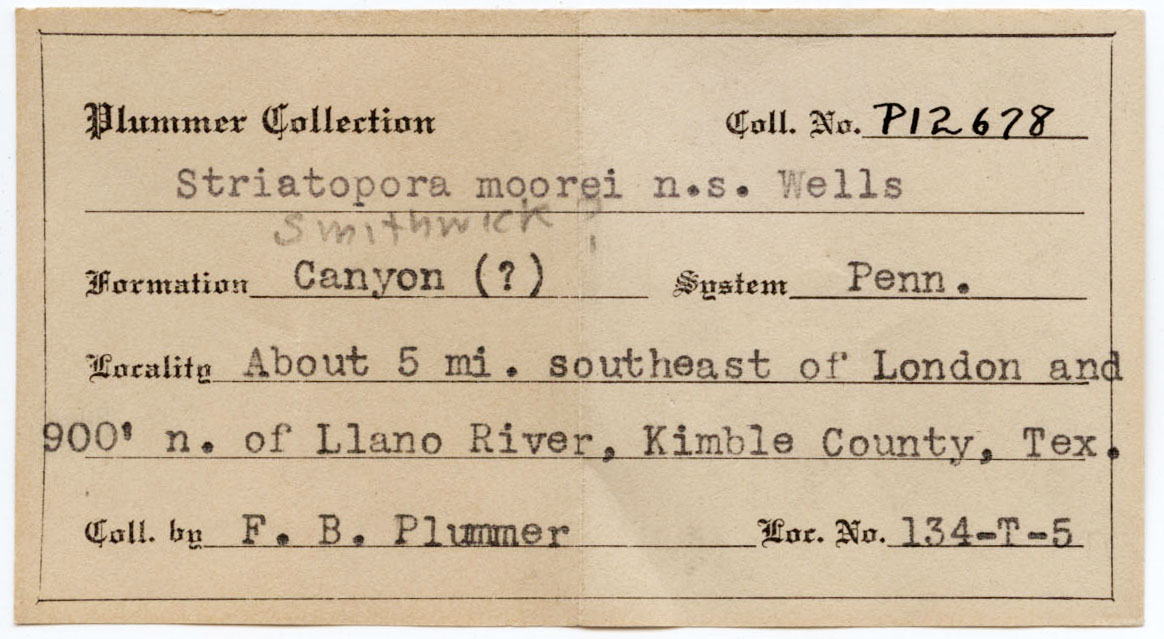 Plummer Collection Coll. No. P12678
Striatopora moorei n.s. Wells
Smithwick ?
Formation Canyon (?) System Penn.
Locality About 5 mi. southeast of London and
900' n. of Llano River, Kimble County, Tex.
Coll. by F. B. Plummer Loc. No. 134-T-5